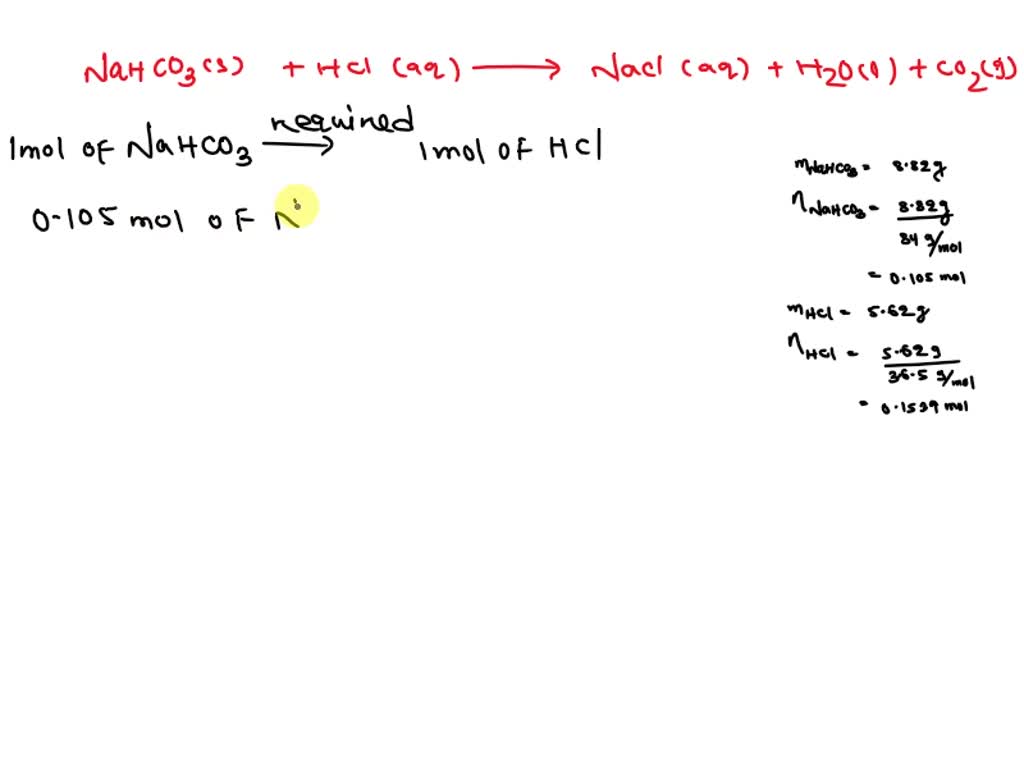 NaHCO3(s) + HCl (aq) → NaCl (aq) + H2O(l) + CO2(g)
1mol of NaHCO3 required → 1mol of HCl
0.105 mol of N
mNaHCO3 = 8.82g
nNaHCO3 = 8.82g
84 g/mol
= 0.105 mol
mHCl = 5.62g
nHCl = 5.62g
36.5 g/mol
= 0.1539 mol